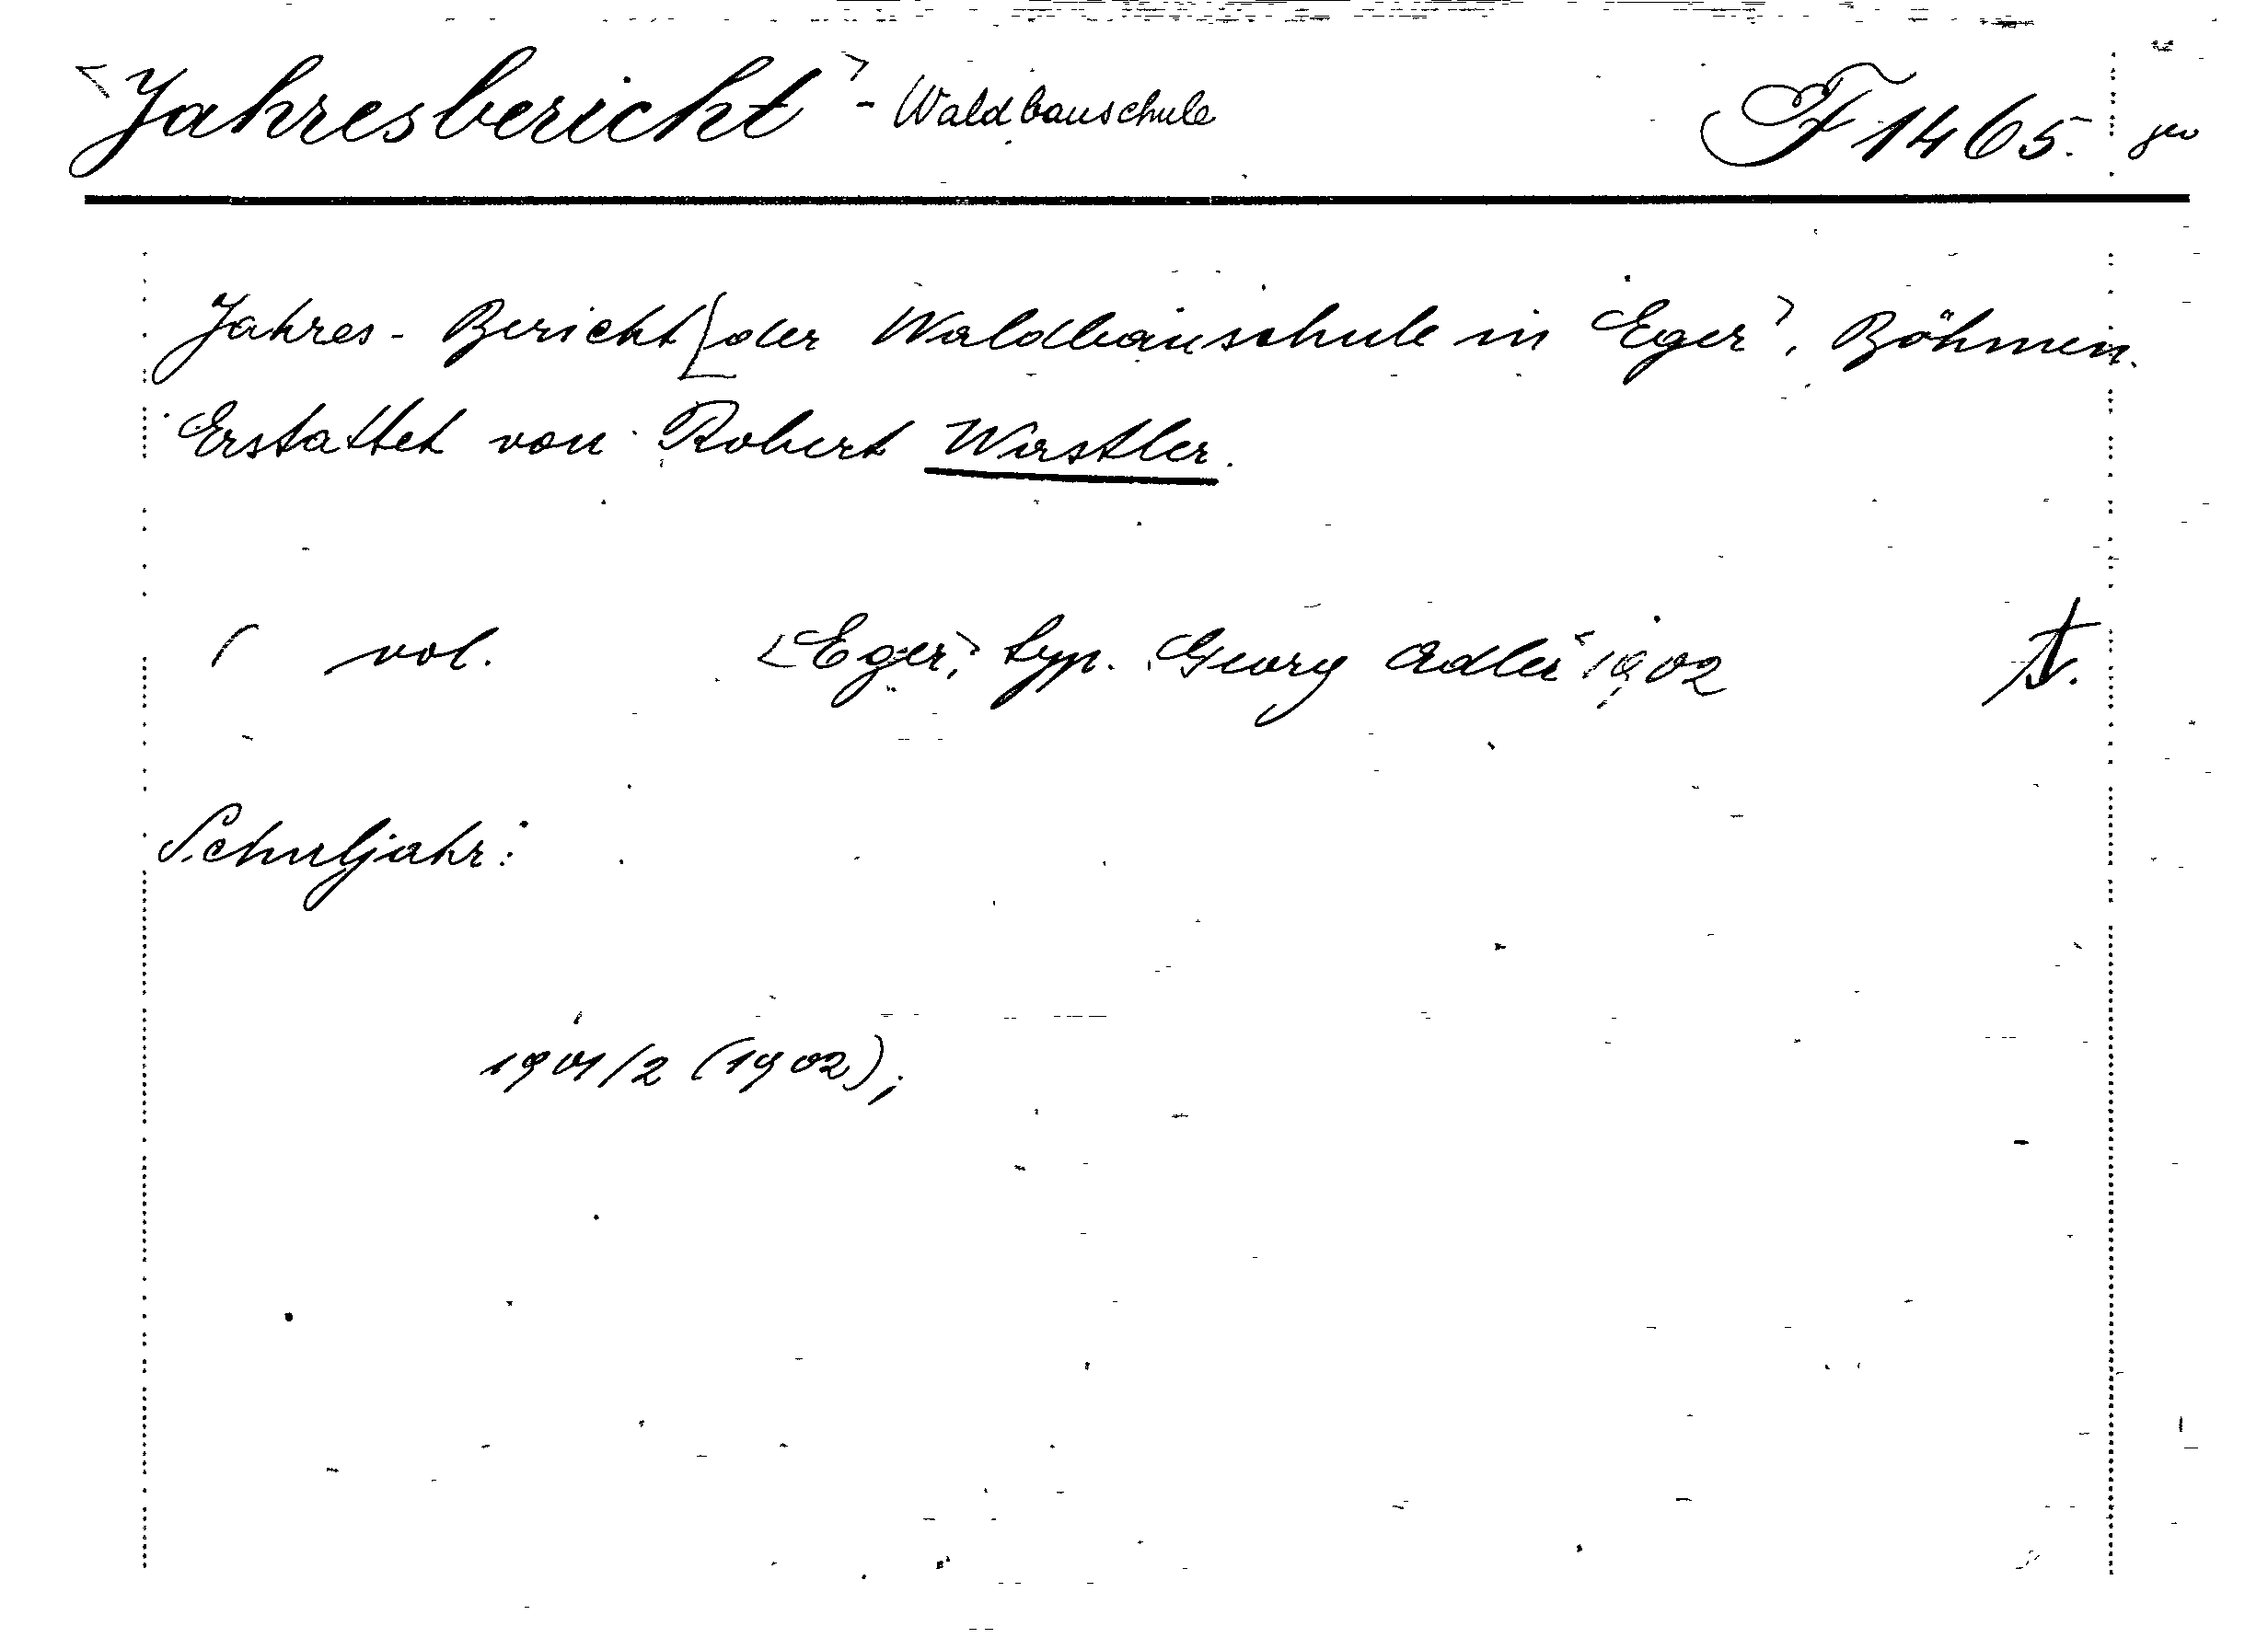 <Jahresbericht> - Waldbauschule F 1465.
Jahres-Bericht [der Waldbauschule in Eger>, Böhmen.
Erstattet von Robert Wastler.
( vol. <Eger,> typ. Georg Adler 1902
Schuljahr:
1901/2 (1902);